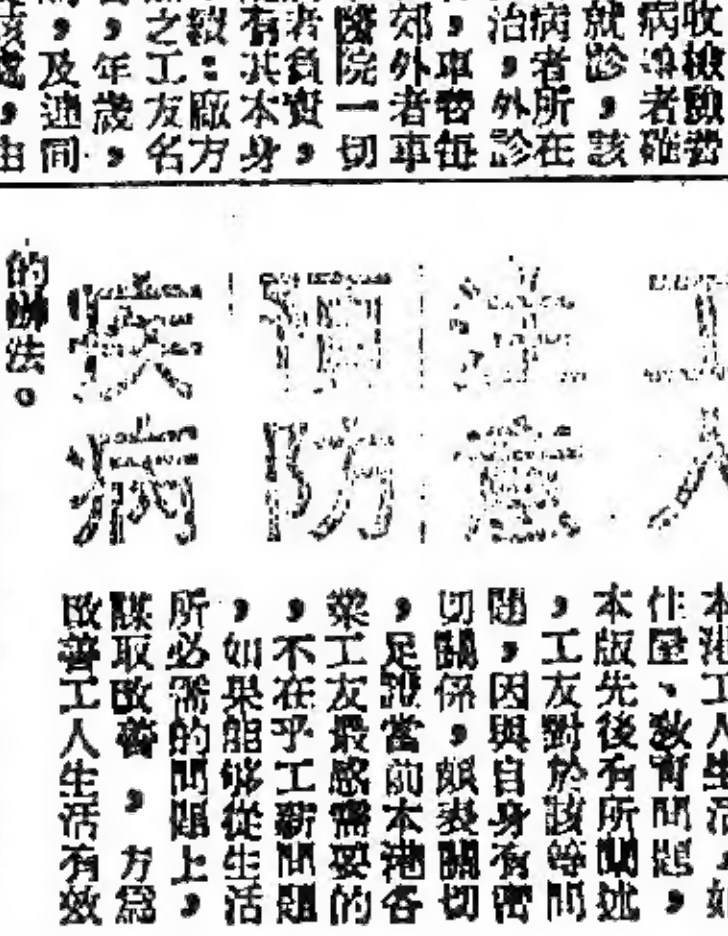 收檢驗費
病準者確
就診，該
病者所在
治，外診
，車費每
郊外者車
醫院一切
者負責，
有其本身
：廠方
之工友名
，年歲，
，及連同
，由
工人
注意
預防
疾病
本港工人生活，如
住屋、教育問題，
本版先後有所闡述
，工友對於該等問
題，因與自身有密
切關係，頗表關切
，足證當前本港各
業工友最感需要的
，不在乎工薪問題
，如果能够從生活
所必需的問題上，
謀取改善，方爲
改善工人生活有效
的辦法。